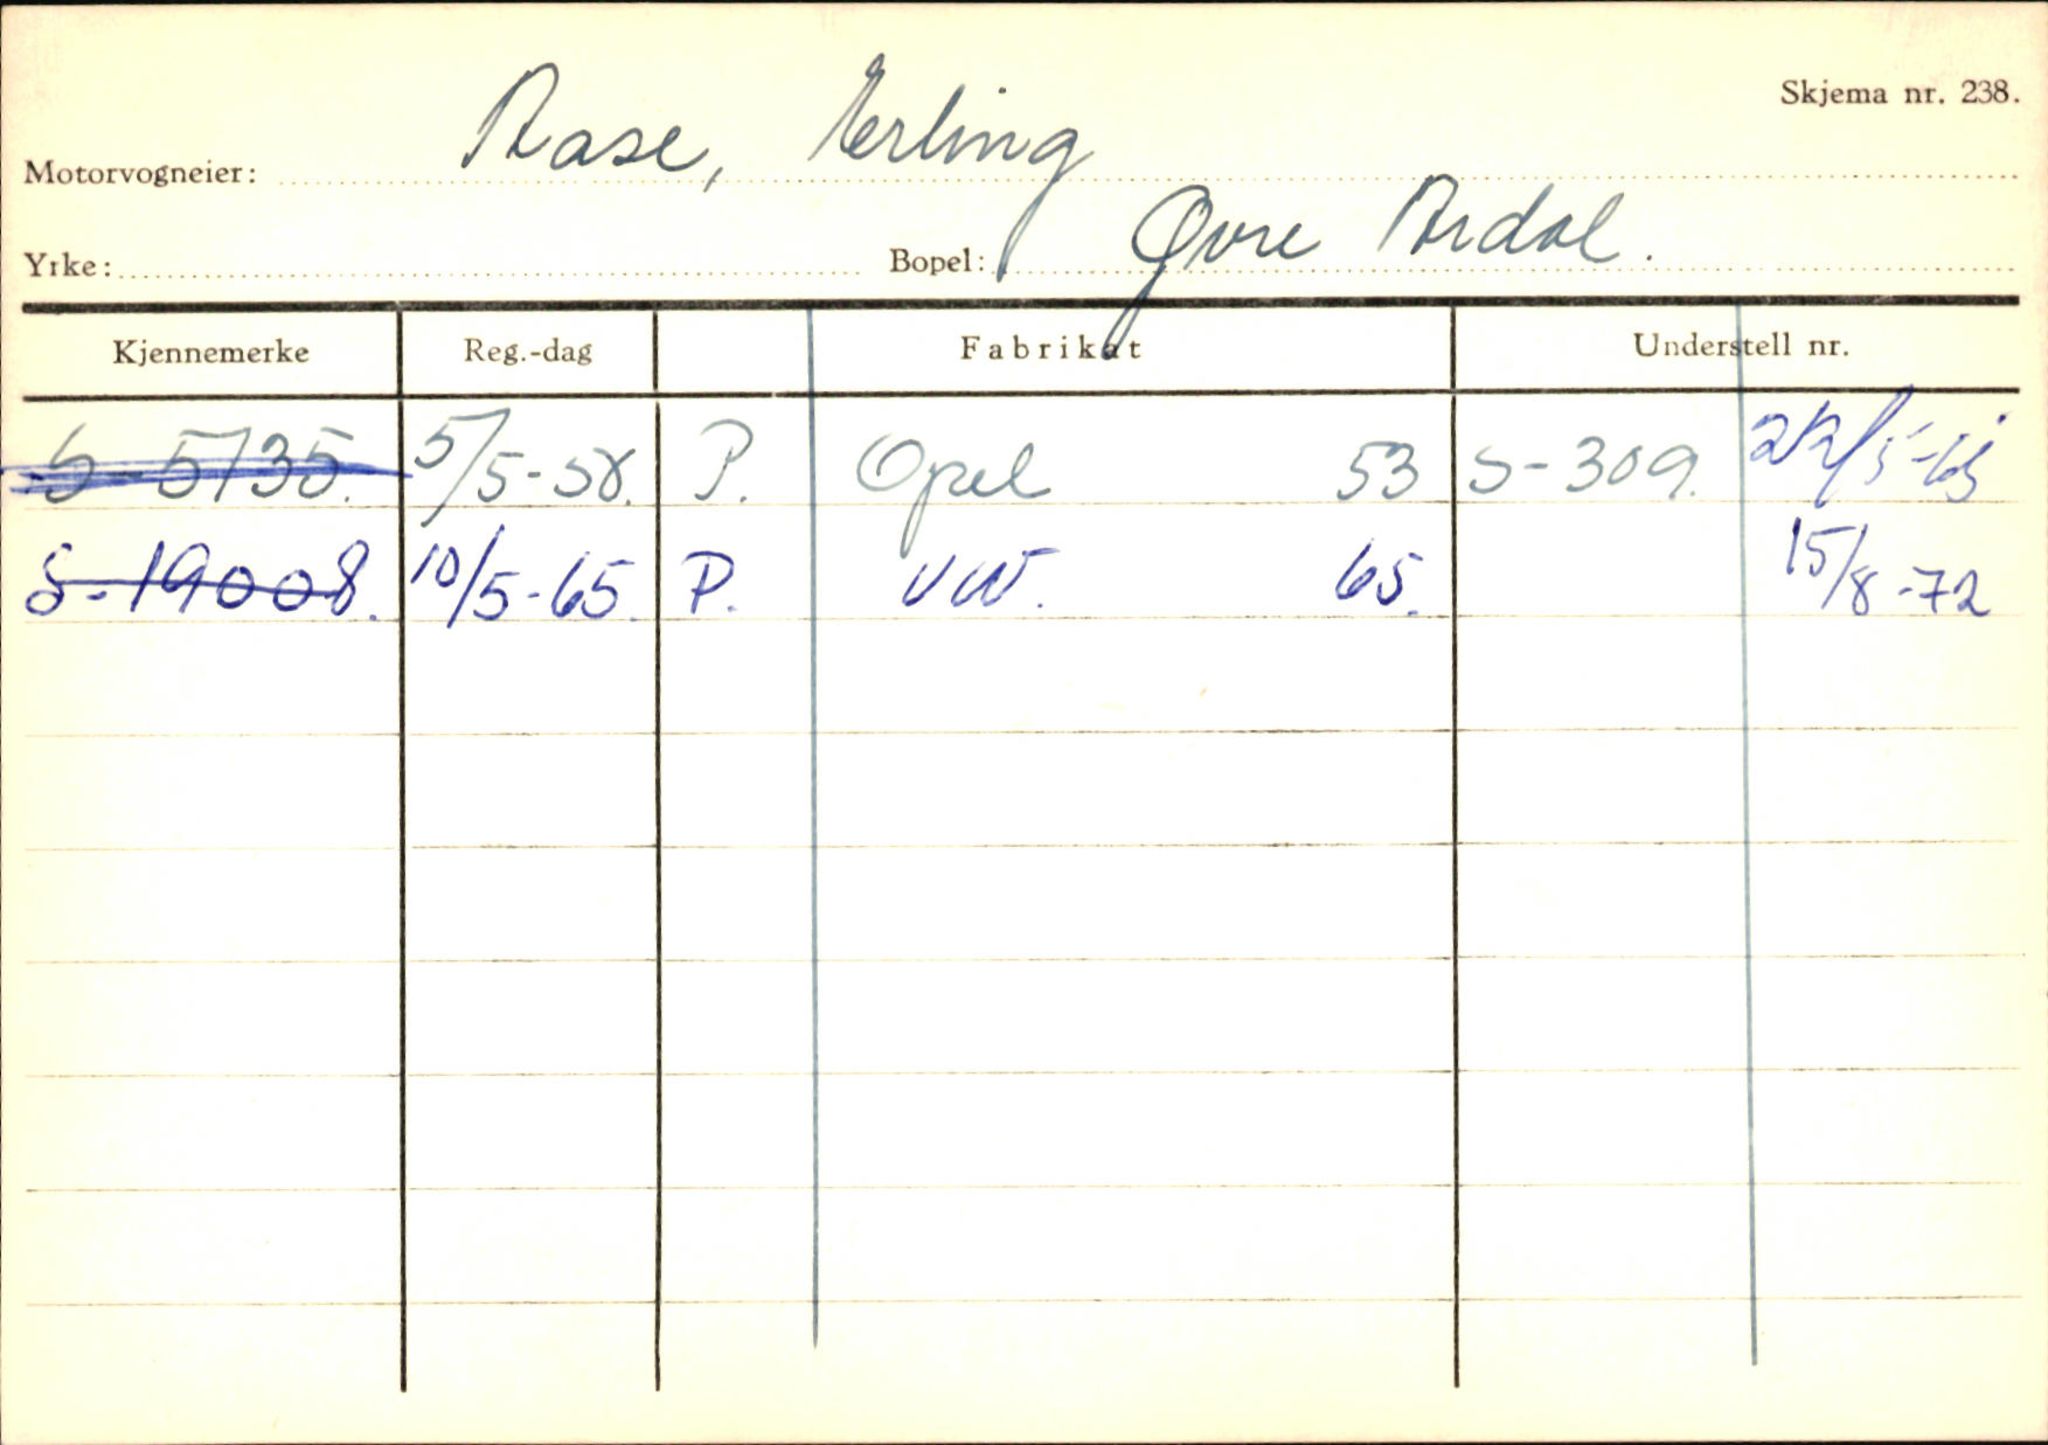 Skjema nr. 238.
Motorvogneier: Aase, Erling
Yrke: Bopel: Øvre Ardal.
Kjennemerke Reg.-dag Fabrikat Understell nr.
S-5735. 5/5-58. P. Opel 53 S-309. 22/5-65
S-19008. 10/5-65. P. VW. 65. 15/8-72